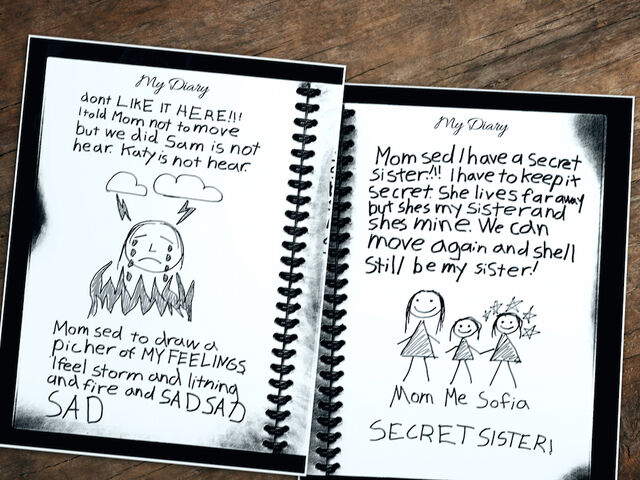 My Diary
dont LIKE IT HERE!!!
I told Mom not to move
but we did Sam is not
hear. Katy is not hear.
Mom sed to draw a
picher of MY FEELINGS
I feel storm and litning
and fire and SAD SAD
SAD
My Diary
Mom sed I have a secret
sister!!! I have to keep it
secret. She lives far away
but shes my sister and
shes mine. We can
move again and shell
still be my sister!
Mom Me Sofia
SECRET SISTER!